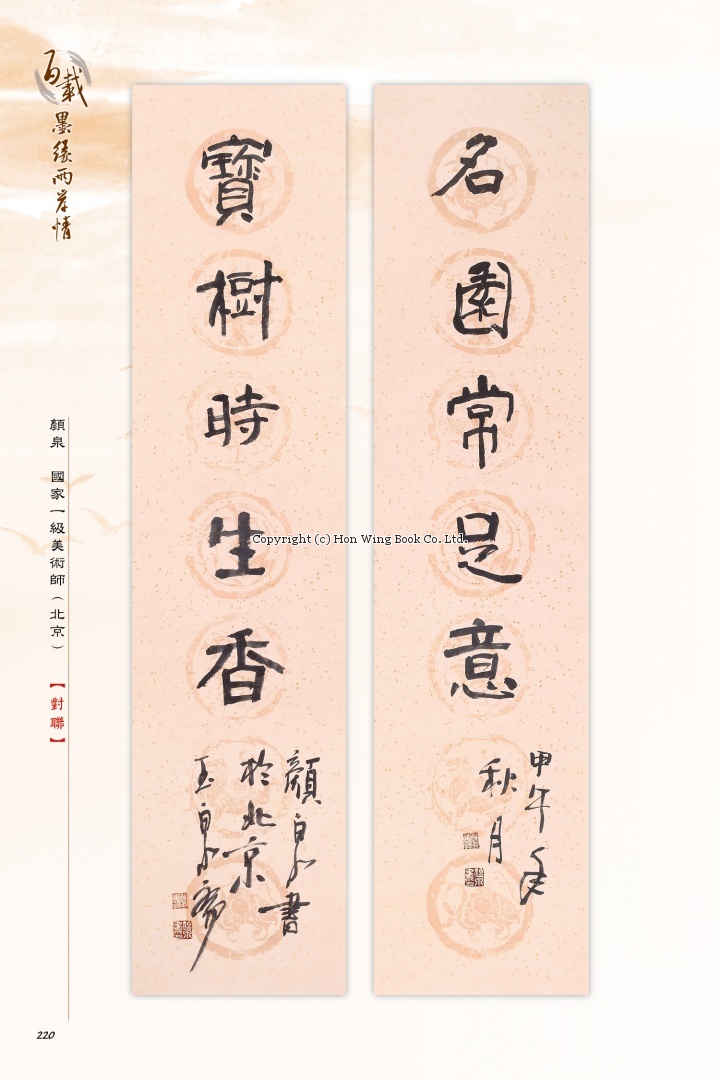 百載墨緣兩岸情
名園常足意
甲午年
秋月
寶樹時生香
顏泉書
於北京
玉泉齋
顏泉 國家一級美術師（北京）
【對聯】
Copyright (c) Hon Wing Book Co. Ltd.
220